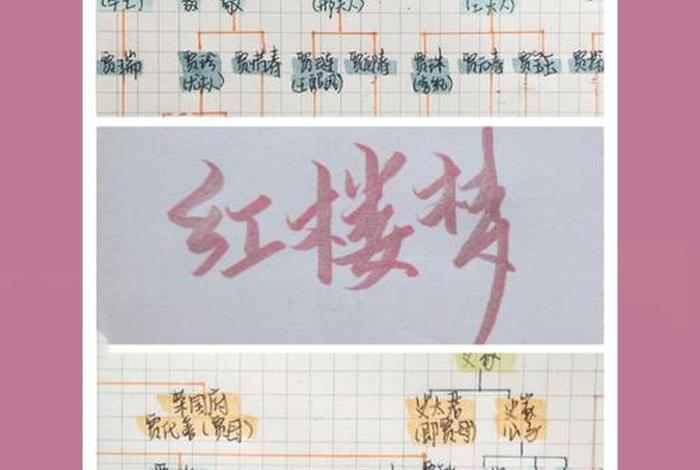 (邢夫人)
(王夫人)
贾瑞
贾珍
(尤氏)
贾惜春
贾琏
(王熙凤)
贾迎春
贾珠
(李纨)
贾元春
贾宝玉
红楼梦
荣国府
贾代善(贾母)
史太君
(即贾母)
史家
公子